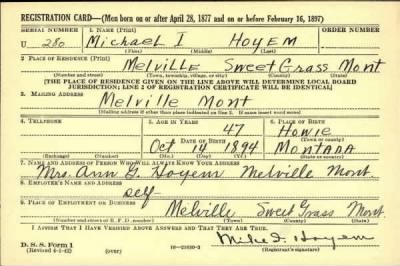 REGISTRATION CARD—(Men born on or after April 28, 1877 and on or before February 16, 1897)
SERIAL NUMBER 1. NAME (Print) ORDER NUMBER
U 280 Michael I Hoyem
(First) (Middle) (Last)
2. PLACE OF RESIDENCE (Print)
Melville Sweet Grass Mont
(Number and street) (Town, township, village, or city) (County) (State)
[THE PLACE OF RESIDENCE GIVEN ON THE LINE ABOVE WILL DETERMINE LOCAL BOARD
JURISDICTION; LINE 2 OF REGISTRATION CERTIFICATE WILL BE IDENTICAL]
3. MAILING ADDRESS
Melville Mont
[Mailing address if other than place indicated on line 2. If same insert word same]
4. TELEPHONE 5. AGE IN YEARS 6. PLACE OF BIRTH
47 Howie
DATE OF BIRTH (Town or county)
Oct 14 1894 Montana
(Exchange) (Number) (Mo.) (Day) (Yr.) (State or country)
7. NAME AND ADDRESS OF PERSON WHO WILL ALWAYS KNOW YOUR ADDRESS
Mrs. Ann G. Hoyem Melville Mont.
8. EMPLOYER'S NAME AND ADDRESS
Self
9. PLACE OF EMPLOYMENT OR BUSINESS
Melville Sweet Grass Mont.
(Number and street or R. F. D. number) (Town) (County) (State)
I AFFIRM THAT I HAVE VERIFIED ABOVE ANSWERS AND THAT THEY ARE TRUE.
D. S. S. Form 1 Mike I. Hoyem
(Revised 4-1-42) (over) (Registrant's signature)